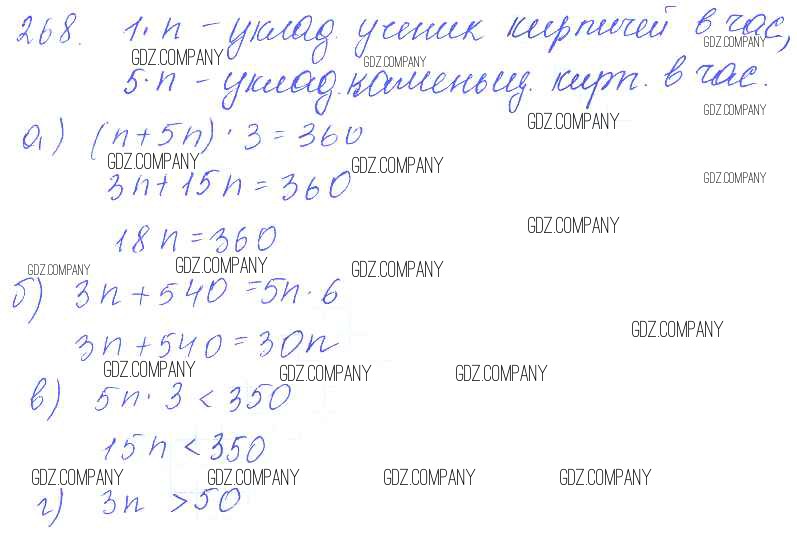 268. 1·n – уклад. ученик кирпичей в час,
GDZ.COMPANY GDZ.COMPANY GDZ.COMPANY
5·n – уклад. каменьщ. кирп. в час.
GDZ.COMPANY GDZ.COMPANY
а) (n+5n)·3=360
GDZ.COMPANY GDZ.COMPANY GDZ.COMPANY
3n+15n=360
GDZ.COMPANY
18n=360
GDZ.COMPANY GDZ.COMPANY GDZ.COMPANY
б) 3n+540=5n·6
GDZ.COMPANY
3n+540=30n
GDZ.COMPANY GDZ.COMPANY GDZ.COMPANY
в) 5n·3<350
15n<350
GDZ.COMPANY GDZ.COMPANY GDZ.COMPANY GDZ.COMPANY
г) 3n >50